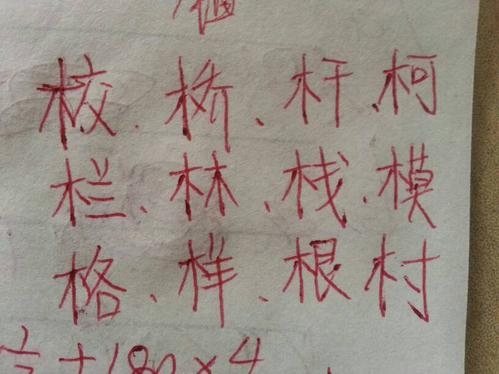 校、桥、杆、柯
栏、林、栈、模
格、样、根村
+180×4